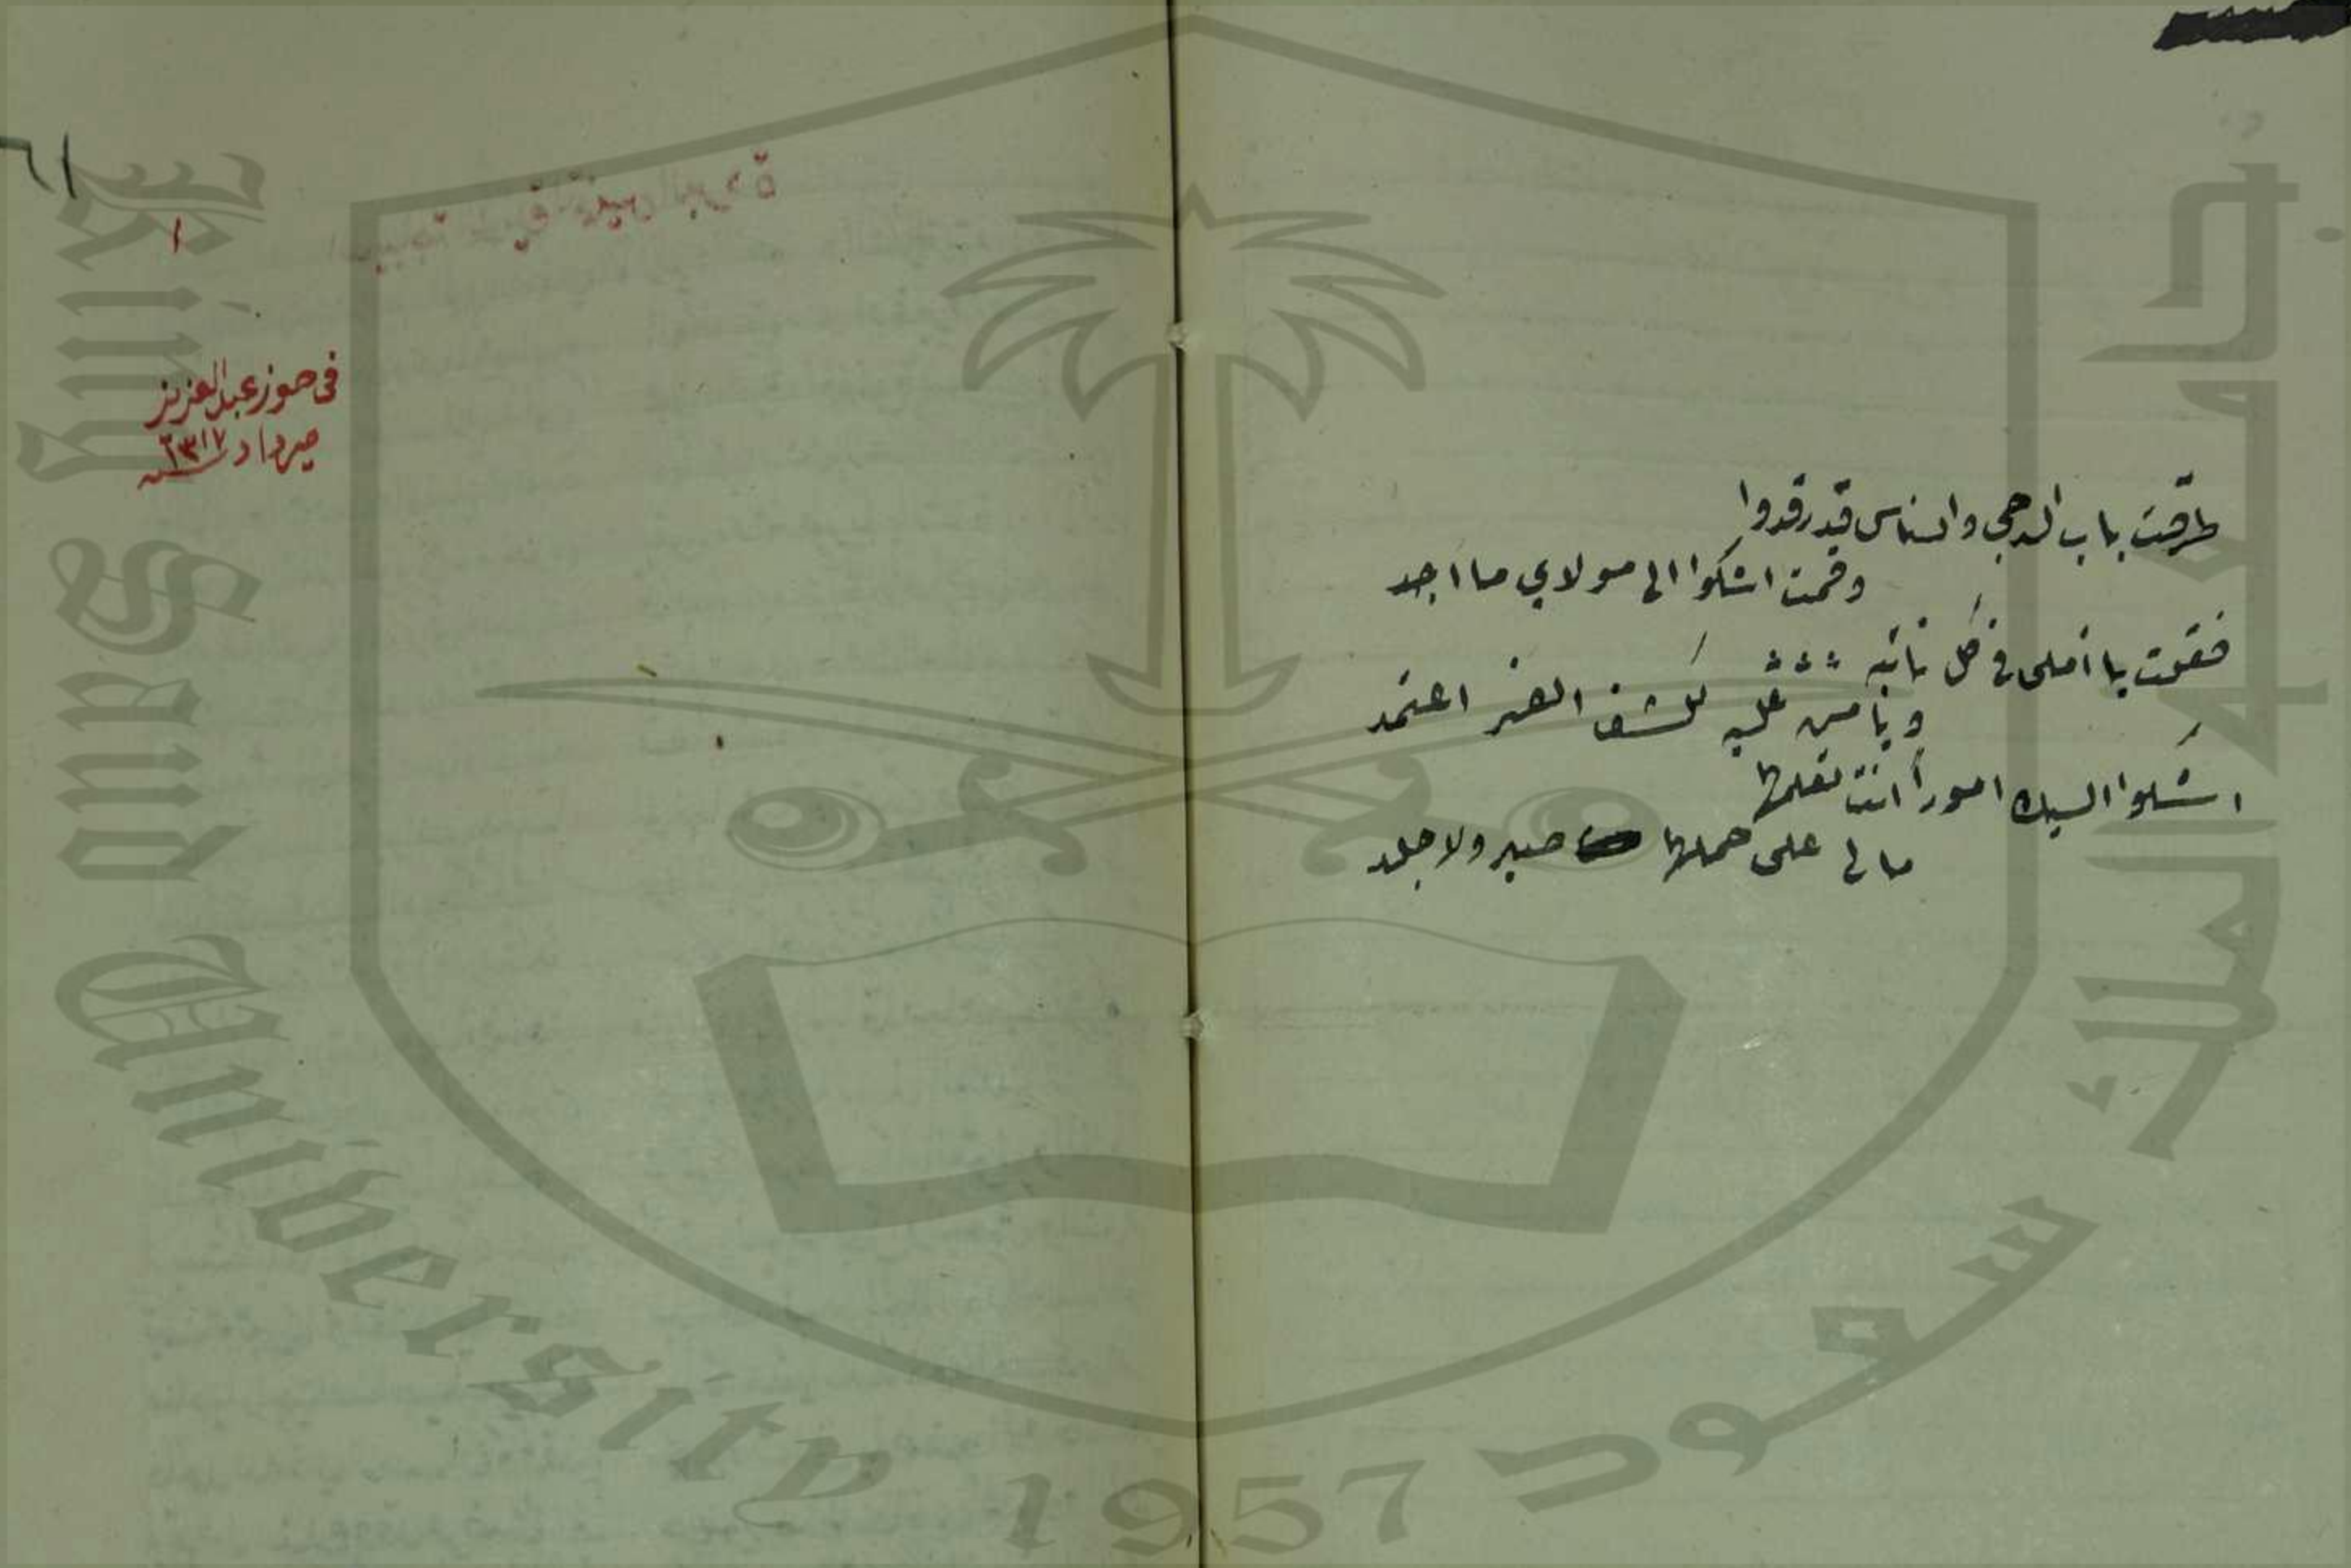 طرقت باب الدجى والناس قد رقدوا
وقمت اشكوا الى مولاي ما اجد
فقلت يا املى فى كل نائبه
ويا من عليه لكشف الضر اعتمد
اشكوا اليك اموراً انت تعلمها
مالى على حملها صبر ولا جلد
١
فى حوز عبد العزيز
ميرداد ١٣١٧ سنه
جامعة الملك سعود
King Saud University
1957